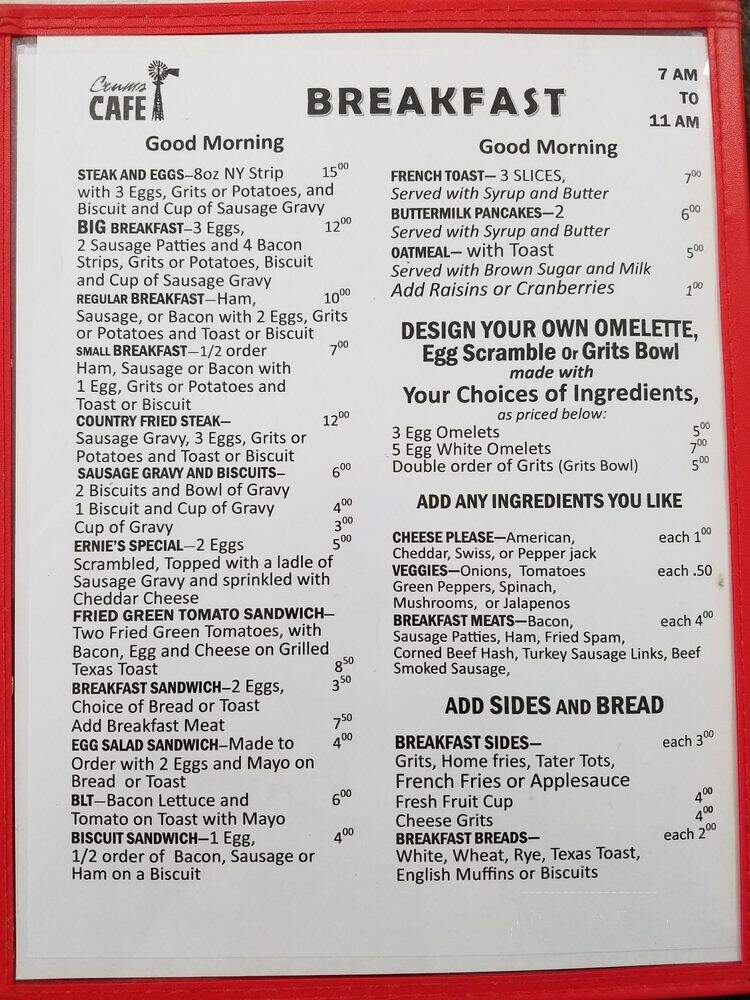 Crums
CAFE
BREAKFAST
7 AM
TO
11 AM
Good Morning
STEAK AND EGGS–8oz NY Strip 15⁰⁰
with 3 Eggs, Grits or Potatoes, and
Biscuit and Cup of Sausage Gravy
BIG BREAKFAST–3 Eggs, 12⁰⁰
2 Sausage Patties and 4 Bacon
Strips, Grits or Potatoes, Biscuit
and Cup of Sausage Gravy
REGULAR BREAKFAST–Ham, 10⁰⁰
Sausage, or Bacon with 2 Eggs, Grits
or Potatoes and Toast or Biscuit
SMALL BREAKFAST–1/2 order 7⁰⁰
Ham, Sausage or Bacon with
1 Egg, Grits or Potatoes and
Toast or Biscuit
COUNTRY FRIED STEAK– 12⁰⁰
Sausage Gravy, 3 Eggs, Grits or
Potatoes and Toast or Biscuit
SAUSAGE GRAVY AND BISCUITS– 6⁰⁰
2 Biscuits and Bowl of Gravy
1 Biscuit and Cup of Gravy 4⁰⁰
Cup of Gravy 3⁰⁰
ERNIE'S SPECIAL–2 Eggs 5⁰⁰
Scrambled, Topped with a ladle of
Sausage Gravy and sprinkled with
Cheddar Cheese
FRIED GREEN TOMATO SANDWICH–
Two Fried Green Tomatoes, with
Bacon, Egg and Cheese on Grilled
Texas Toast 8⁵⁰
BREAKFAST SANDWICH–2 Eggs, 3⁵⁰
Choice of Bread or Toast
Add Breakfast Meat 7⁵⁰
EGG SALAD SANDWICH–Made to 4⁰⁰
Order with 2 Eggs and Mayo on
Bread or Toast
BLT–Bacon Lettuce and 6⁰⁰
Tomato on Toast with Mayo
BISCUIT SANDWICH–1 Egg, 4⁰⁰
1/2 order of Bacon, Sausage or
Ham on a Biscuit
Good Morning
FRENCH TOAST– 3 SLICES, 7⁰⁰
Served with Syrup and Butter
BUTTERMILK PANCAKES–2 6⁰⁰
Served with Syrup and Butter
OATMEAL– with Toast 5⁰⁰
Served with Brown Sugar and Milk
Add Raisins or Cranberries 1⁰⁰
DESIGN YOUR OWN OMELETTE,
Egg Scramble or Grits Bowl
made with
Your Choices of Ingredients,
as priced below:
3 Egg Omelets 5⁰⁰
5 Egg White Omelets 7⁰⁰
Double order of Grits (Grits Bowl) 5⁰⁰
ADD ANY INGREDIENTS YOU LIKE
CHEESE PLEASE—American, each 1⁰⁰
Cheddar, Swiss, or Pepper jack
VEGGIES—Onions, Tomatoes each .50
Green Peppers, Spinach,
Mushrooms, or Jalapenos
BREAKFAST MEATS—Bacon, each 4⁰⁰
Sausage Patties, Ham, Fried Spam,
Corned Beef Hash, Turkey Sausage Links, Beef
Smoked Sausage,
ADD SIDES AND BREAD
BREAKFAST SIDES— each 3⁰⁰
Grits, Home fries, Tater Tots,
French Fries or Applesauce
Fresh Fruit Cup 4⁰⁰
Cheese Grits 4⁰⁰
BREAKFAST BREADS— each 2⁰⁰
White, Wheat, Rye, Texas Toast,
English Muffins or Biscuits